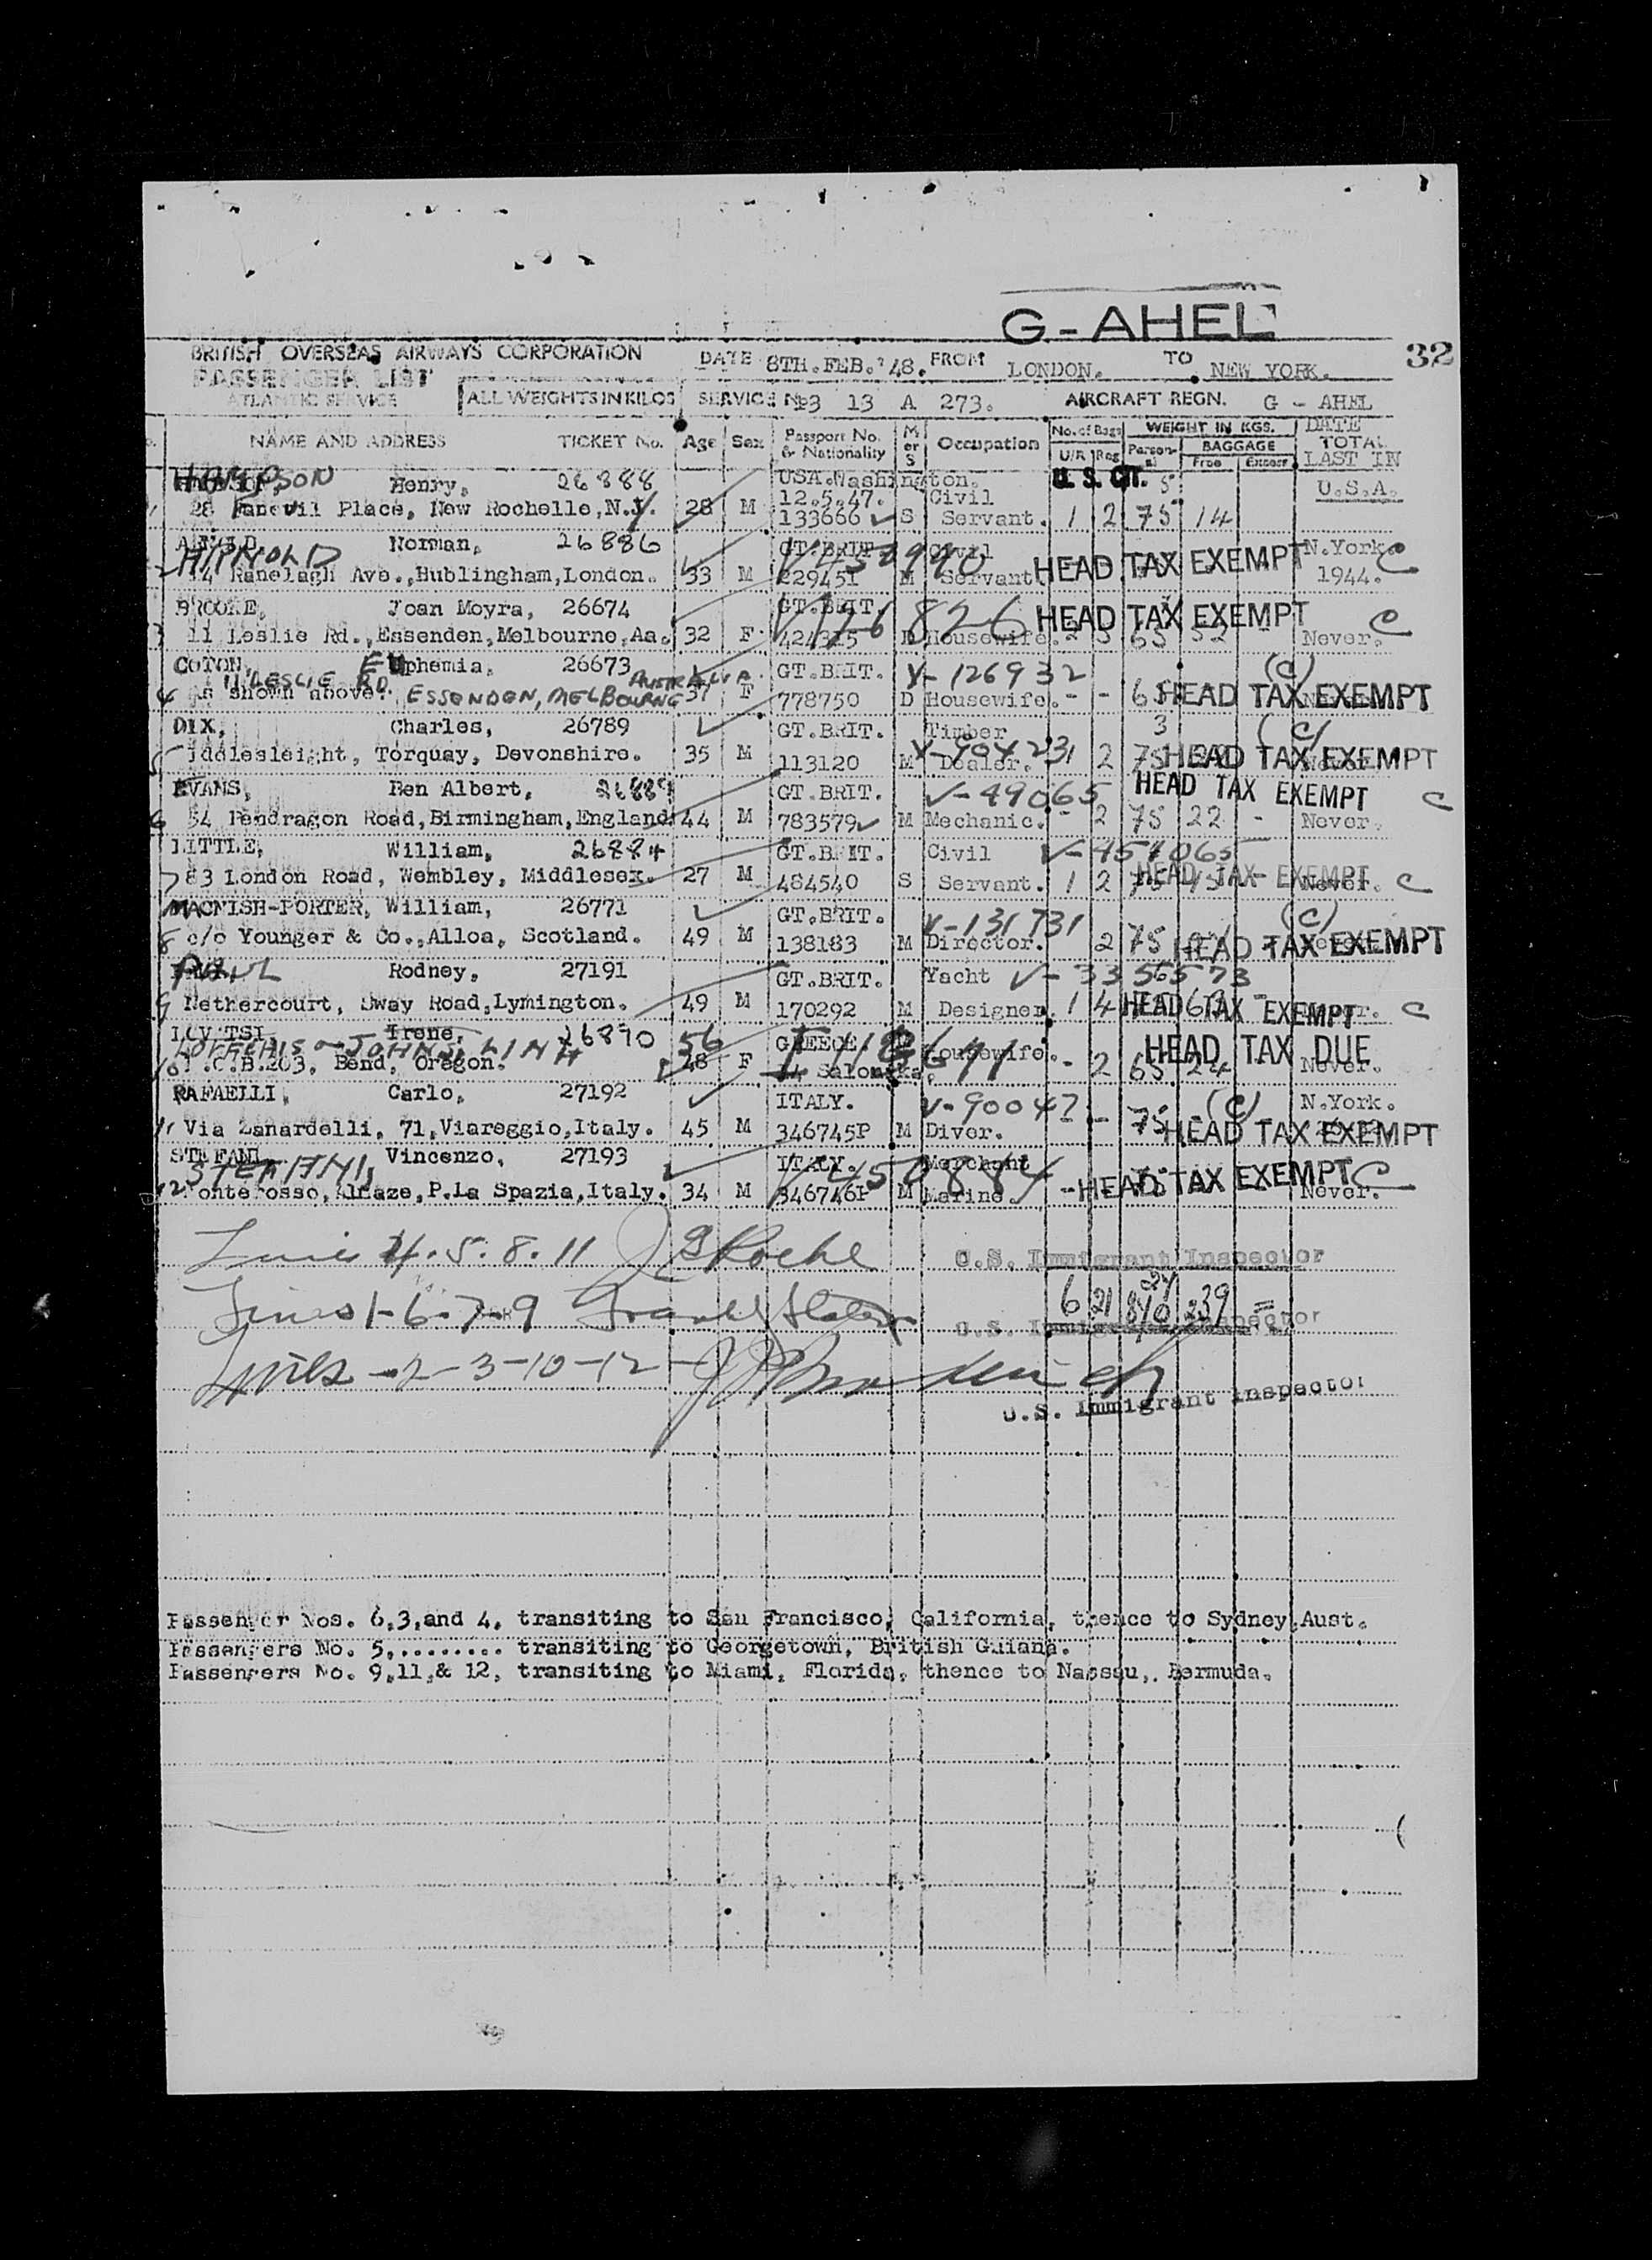 G-AHEL
BRITISH OVERSEAS AIRWAYS CORPORATION DATE 8TH.FEB.'48. FROM LONDON. TO NEW YORK. 32
PASSENGER LIST
ATLANTIC SERVICE ALL WEIGHTS IN KILOS SERVICE No3 13 A 273. AIRCRAFT REGN. G - AHEL
NAME AND ADDRESS TICKET No. Age Sex Passport No. & Nationality M or S Occupation No. of Bags U/R Reg WEIGHT IN KGS. Personal BAGGAGE Free Excess DATE TOTAL LAST IN
HAMPSON Henry, 26888 USA.Washington. U. S. CIT. U.S.A.
12.5.47. Civil
28 Place, New Rochelle,N.Y. 28 M 133666 S Servant. 1 2 75 14
Norman, 26886 GT.BRIT. Civil HEAD TAX EXEMPT N.York. C
14 Ranelagh Ave.,Hublingham,London. 33 M 229451 M Servant. 1944.
BROOKE, Joan Moyra, 26674 GT.BRIT. HEAD TAX EXEMPT C
3 11 Leslie Rd.,Essenden,Melbourne,Aa. 32 F 424315 Housewife. 65 Never.
COTON, EUphemia, 26673 GT.BRIT. V-126932 (C)
11 LESLIE RD AUSTRALIA
4 As shown above. ESSENDON, MELBOURNE 37 F 778750 D Housewife. - - 65 HEAD TAX EXEMPT
DIX, Charles, 26789 GT.BRIT. Timber 3 (C)
5 Iddlesleight, Torquay, Devonshire. 35 M 113120 M Dealer. V-904231 2 75 HEAD TAX EXEMPT
EVANS, Ben Albert, 26889 GT.BRIT. V-49065 HEAD TAX EXEMPT C
6 54 Pendragon Road,Birmingham,England 44 M 783579 M Mechanic. - 2 75 22 - Never.
LITTLE, William, 26884 GT.BRIT. Civil
7 83 London Road, Wembley, Middlesex. 27 M 484540 S Servant. 1 2 HEAD TAX EXEMPT Never. C
MACNISH-PORTER, William, 26771 GT.BRIT. V-131731 (C)
8 c/o Younger & Co.,Alloa, Scotland. 49 M 138183 M Director. 2 75 HEAD TAX EXEMPT
PAUL Rodney, 27191 GT.BRIT. Yacht
9 Nethercourt, Sway Road,Lymington. 49 M 170292 M Designer. 1 4 HEAD TAX EXEMPT C
Irene, 26890 56 GREECE HEAD TAX DUE
10 203, Bend, Oregon. 48 F Salonika. Housewife. - 2 65 24 Never.
RAFAELLI, Carlo, 27192 ITALY. V-90047 (C) N.York.
11 Via Zanardelli, 71,Viareggio,Italy. 45 M 346745P M Diver. - - 75 HEAD TAX EXEMPT
STEFANI, Vincenzo, 27193 ITALY. Merchant HEAD TAX EXEMPT C
12 P.La Spazia,Italy. 34 M 346746P M Marine. Never.
Lines 4. 5. 8. 11 U.S. Immigrant Inspector
6 21 239 =
Lines 1-6-7-9 U.S. Immigrant Inspector
Lines -2-3-10-12
U.S. Immigrant Inspector
Passenger Nos. 6,3,and 4, transiting to San Francisco, California, thence to Sydney.Aust.
Passengers No. 5,......... transiting to Georgetown, British Guiana.
Passengers No. 9,11,& 12, transiting to Miami, Florida, thence to Nassau,. Bermuda.